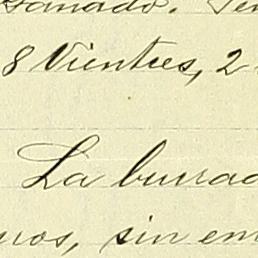 sanado. Ten
8 Vientres, 2
La burrad
nos, sin em